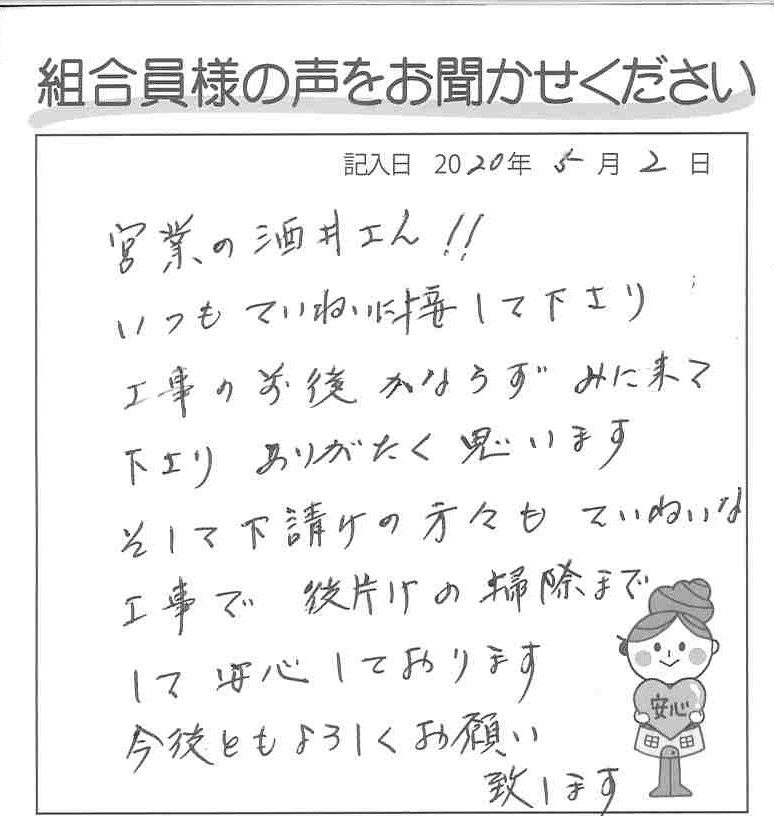 組合員様の声をお聞かせください
記入日 2020年 5月 2日
営業の酒井さん!!
いつもていねいに接して下さり
工事の前後 かならずみに来て
下さり ありがたく思います
そして下請けの方々も ていねいな
工事で 後片けの掃除まで
して 安心しております
今後ともよろしくお願い
致します
安心